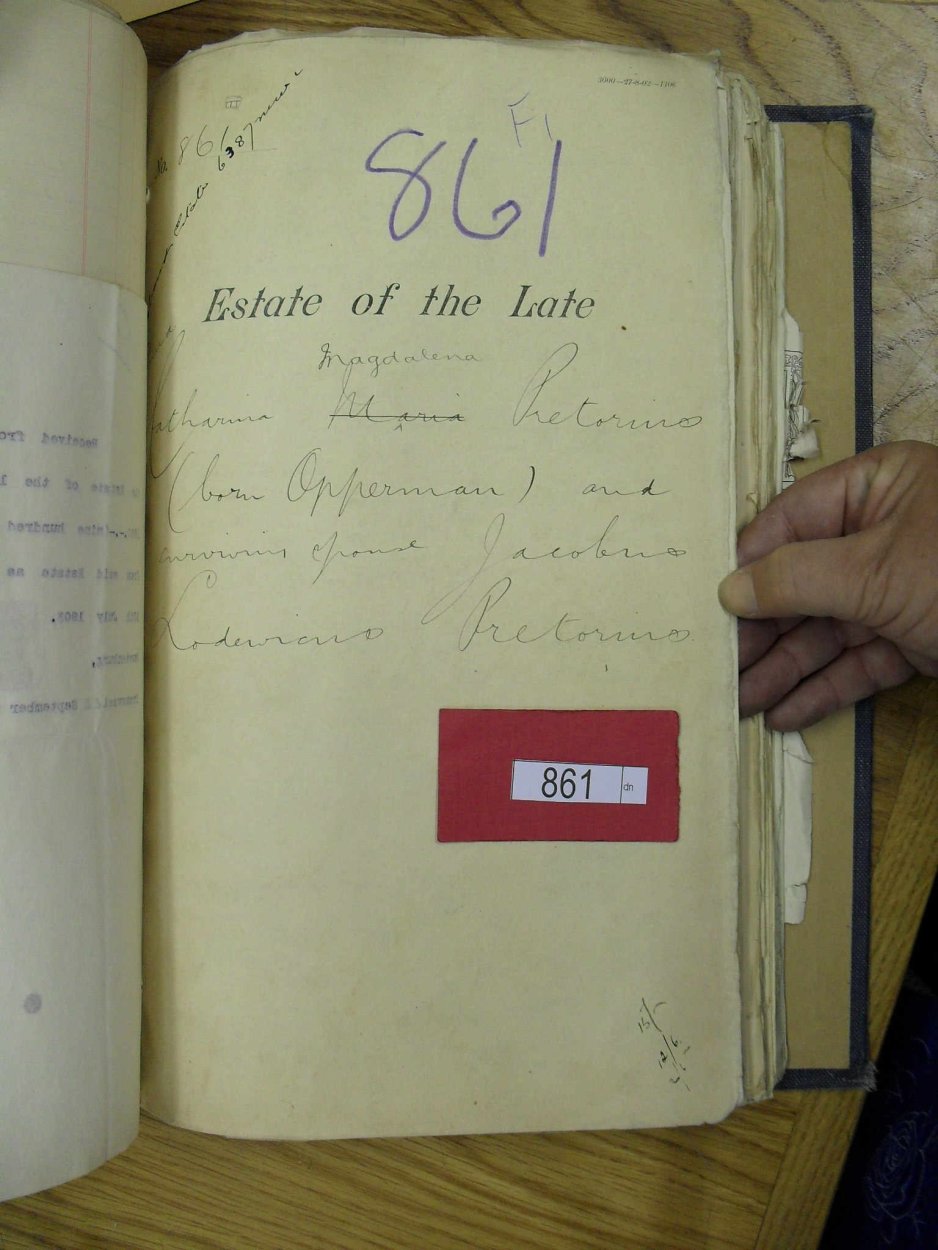 3000—27-8-02—1406
F1
No 861
861
Estate 6387
Estate of the Late
Magdalena
Catharina Maria Pretorius
(born Opperman) and
surviving spouse Jacobus
Lodewicus Pretorius
861 dn
Received fro
Estate of the l
nine hundred
said Estate as
July 1903.
September